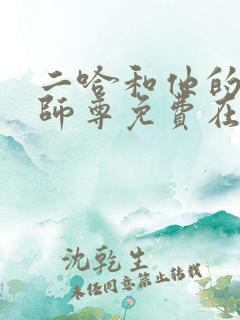 二哈和他的
師尊免費在
沈乾生
未经同意禁止转载